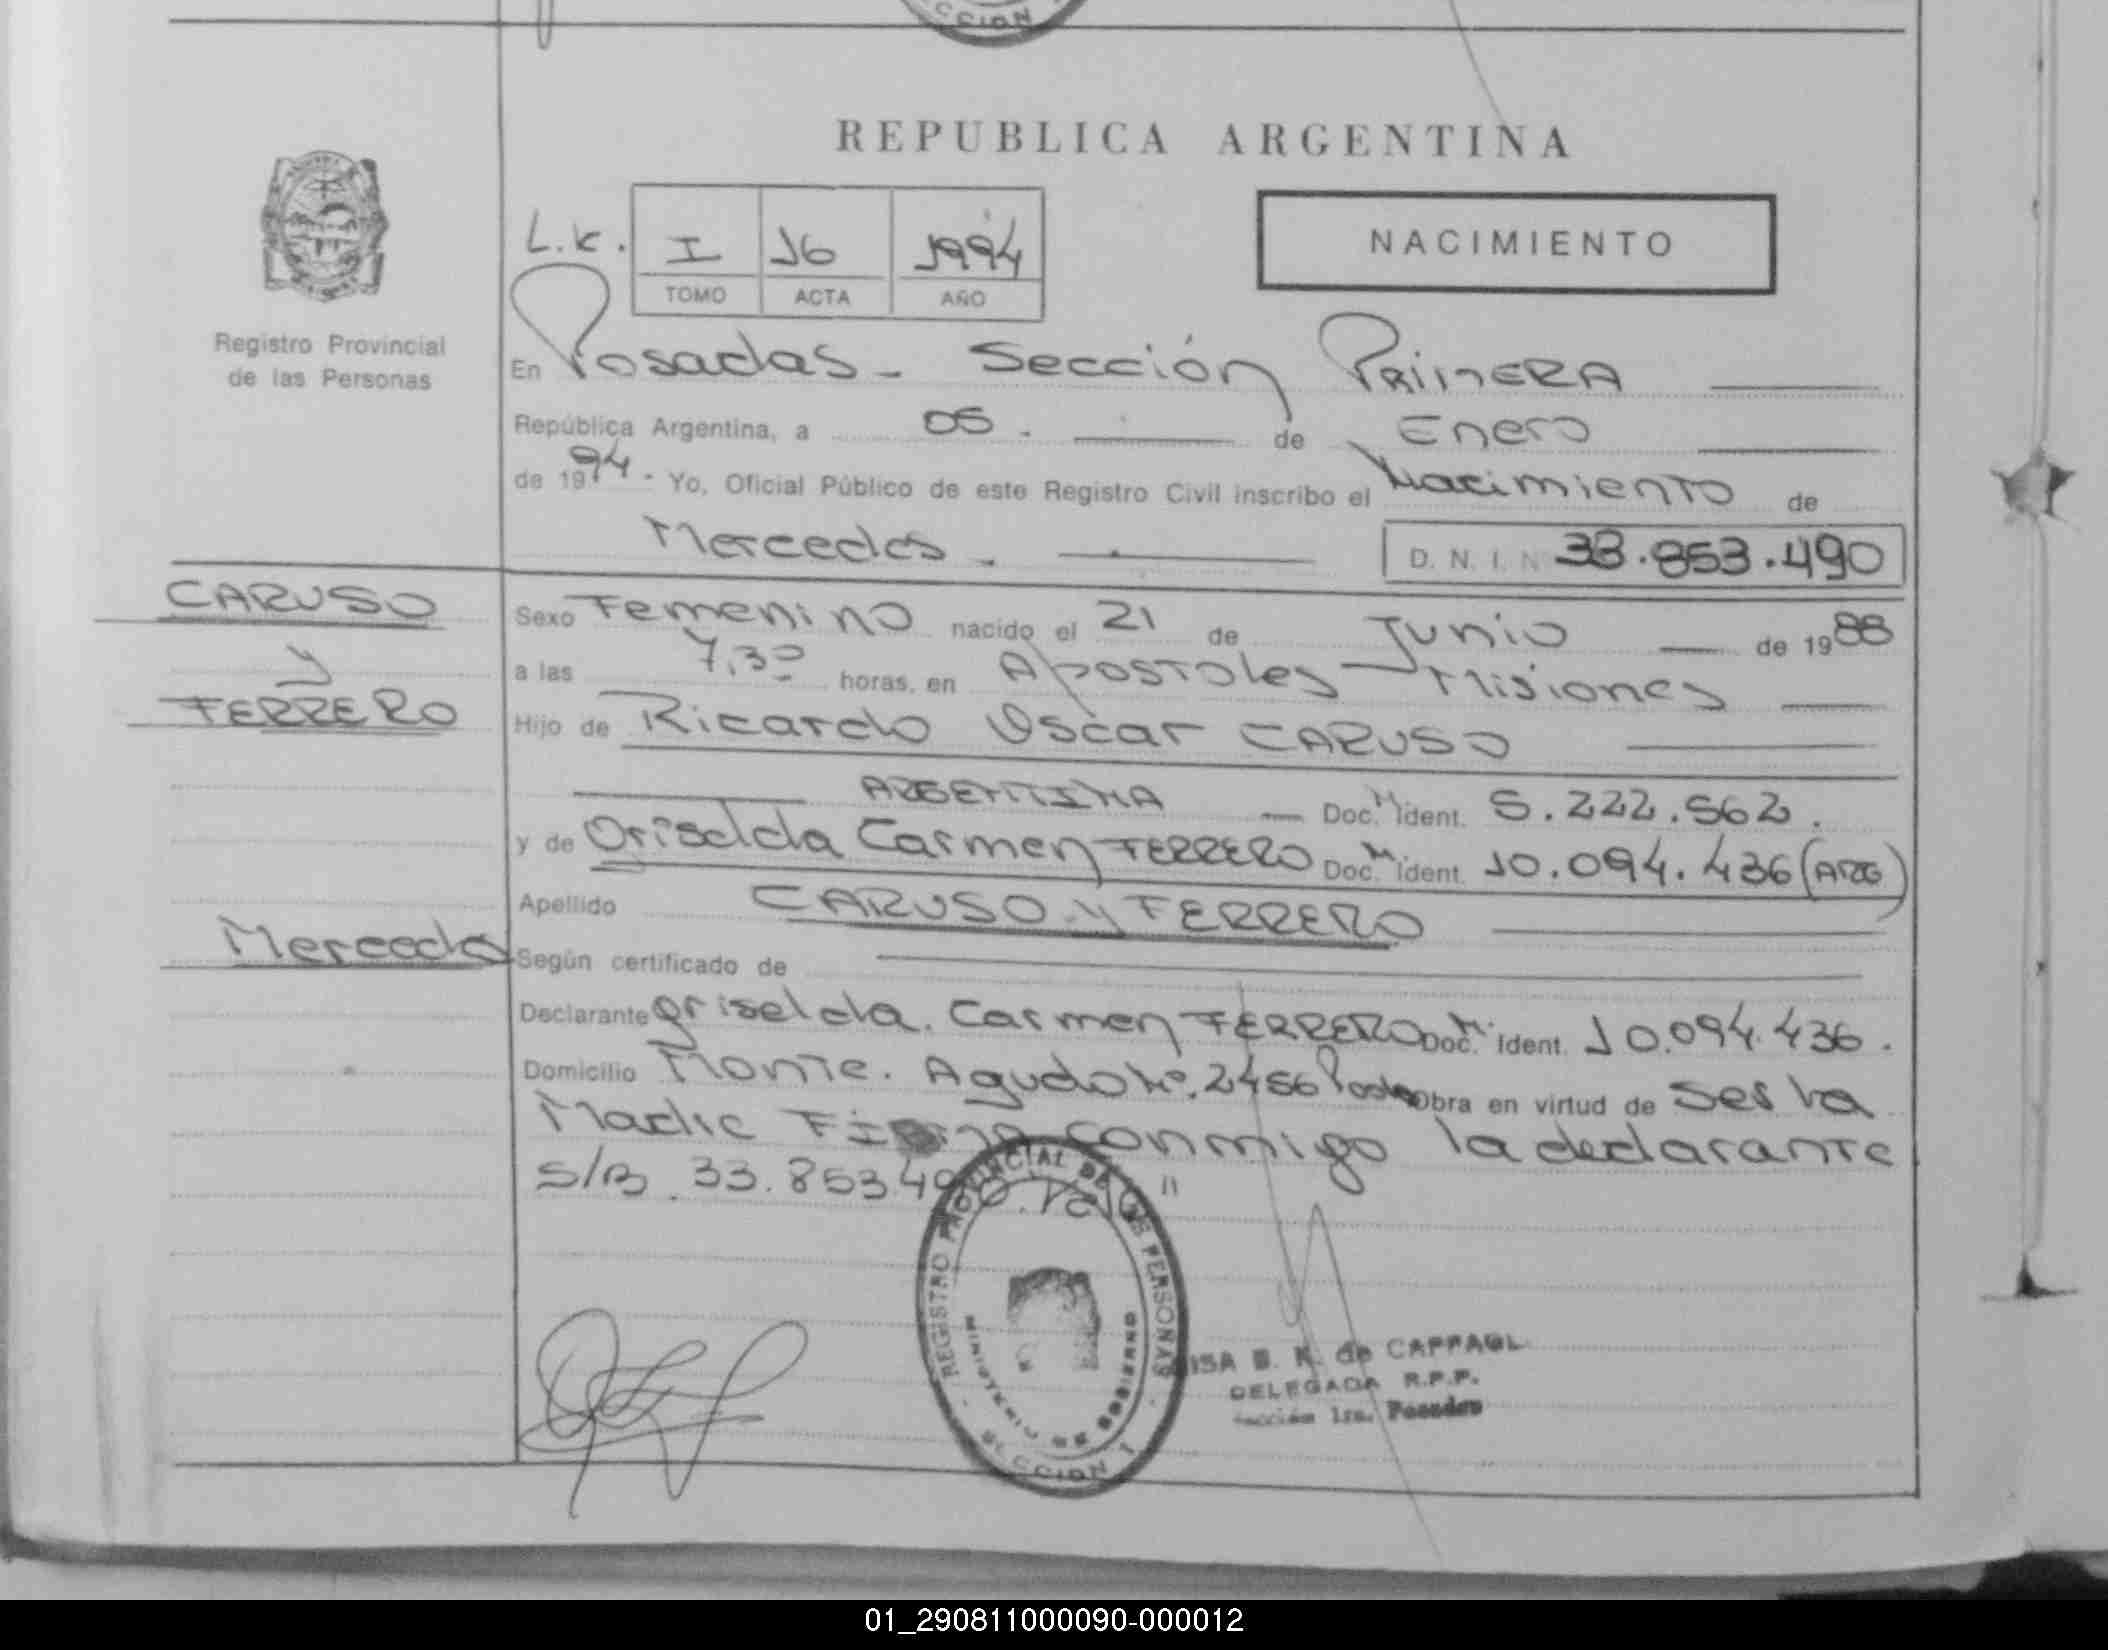 CCION
REPUBLICA ARGENTINA
L.K. I 16 1994
TOMO ACTA AÑO
NACIMIENTO
Registro Provincial
de las Personas
En Posadas - Sección PRimERA
República Argentina, a 05 . de Enero
de 1994 - Yo, Oficial Público de este Registro Civil inscribo el Nacimiento de
Mercedes - D. N. I. N 33.853.490
CARUSO
y
FERRERO
Mercedes
Sexo Femenino nacido el 21 de Junio de 1988
a las 7,30 horas, en Apostoles - Misiones
Hijo de Ricardo Oscar CARUSO
ARGENTINA Doc. M. ident. 5.222.562.
y de Griselda Carmen FERRERO Doc. M. ident. 10.094.436 (ARG)
Apellido CARUSO y FERRERO
Según certificado de
Declarante Griselda. Carmen FERRERO Doc. M. Ident. 10.094.436.
Domicilio Monte. Agudo Nº. 2456 Posadas Obra en virtud de ser la
Madre Firma conmigo la declarante
S/B. 33.853.490. Vale "
REGISTRO PROVINCIAL DE LAS PERSONAS
MINISTERIO DE GOBIERNO
SECCION 1
ISA B. K. de CAPPAGL
DELEGADA R.P.P.
Sección 1ra. Posadas
01_290811000090-000012